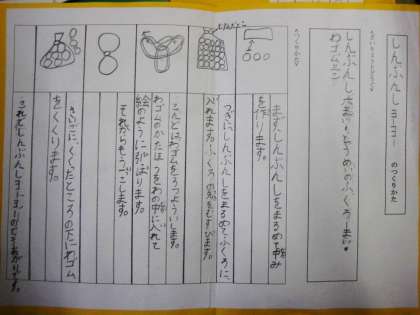 しんぶんしヨーヨー のつくりかた
しんぶんし六まい・とうめいのふくろ一まい・
わゴム三つ
つくりかた
まず、しんぶんしをまるめて中み
を作ります。
つぎに、しんぶんしをまるめてふくろに
入れます。ふくろの先をむすびます。
こんどはわゴムを三つよういします。
わゴムのかたほうをわの中に入れて
絵のように引ぱります。
それからもう一つ
さいごに、くくったところの下にわゴム
をくくります。
これでしんぶんしヨーヨーのできあがりです。